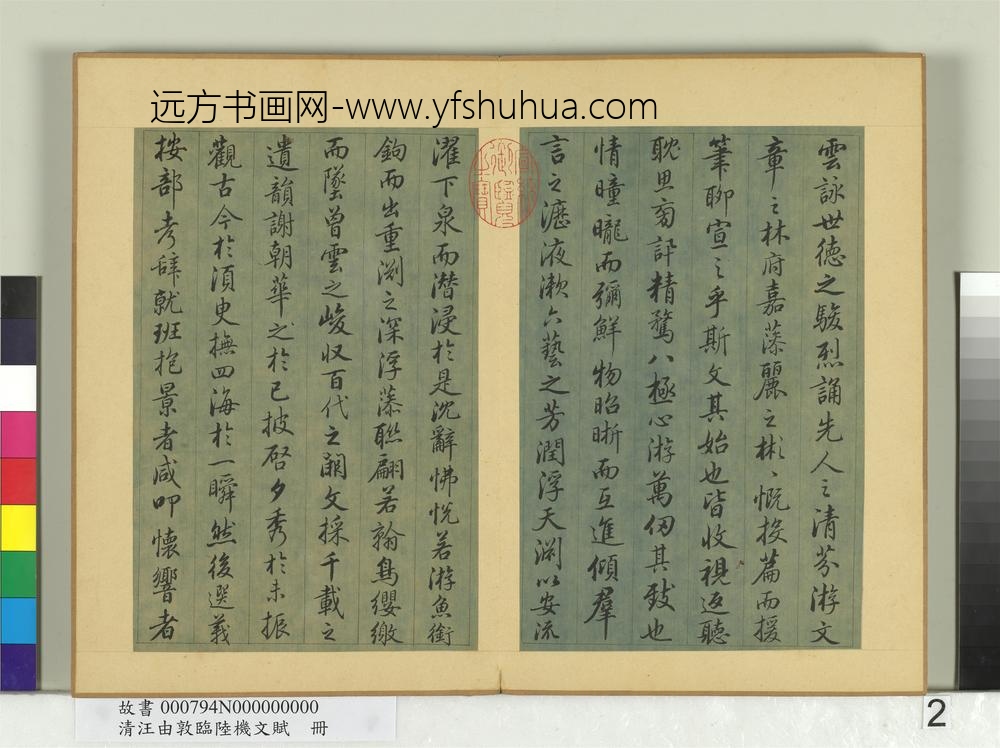 远方书画网-www.yfshuhua.com
雲詠世德之駿烈誦先人之清芬游文
章之林府嘉藻麗之彬〻慨投篇而援
筆聊宣之乎斯文其始也皆收視返聽
耽思旁訊精騖八極心游萬仞其致也
情曈曨而彌鮮物昭晣而互進傾羣
言之瀝液漱六藝之芳潤浮天淵以安流
濯下泉而潛浸於是沈辭怫悅若游魚銜
鉤而出重淵之深浮藻聯翩若翰鳥纓繳
而墜曾雲之峻収百代之闕文採千載之
遺韻謝朝華之於已披啓夕秀於未振
觀古今於須臾撫四海於一瞬然後選義
按部考辭就班抱景者咸叩懷響者
故書 000794N000000000
清汪由敦臨陸機文賦 冊
2